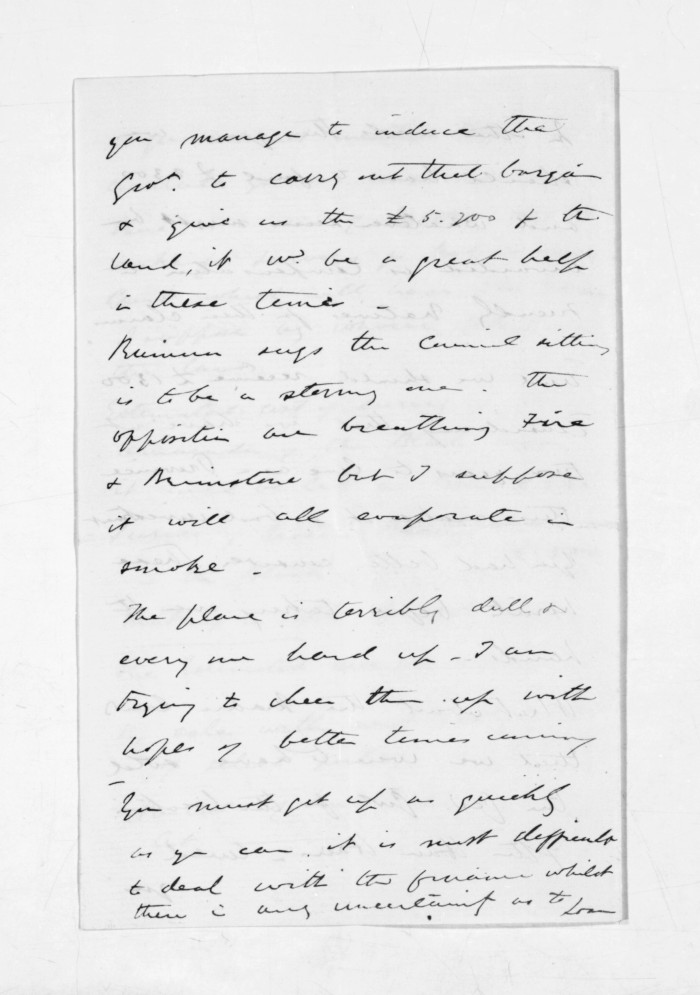 you manage to induce the
Govt. to carry out that bargain
& give us the £5.200 & the
land, it wd. be a great help
in these times -
says the Council sitting
is to be a stormy one. The
opposition are breathing Fire
& Brimstone but I suppose
it will all evaporate in
smoke -
The place is terribly dull &
every one hard up - I am
trying to cheer them up with
hopes of better times coming
-
You must get up as quickly
as you can. it is most difficult
to deal with the finance whilst
there is any uncertainty as to Loan